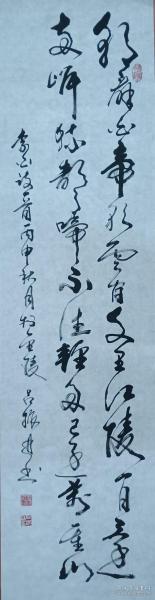 朝辞白帝彩云间千里江陵一日还
两岸猿声啼不住轻舟已过万重山
李白诗一首丙申秋月於金陵